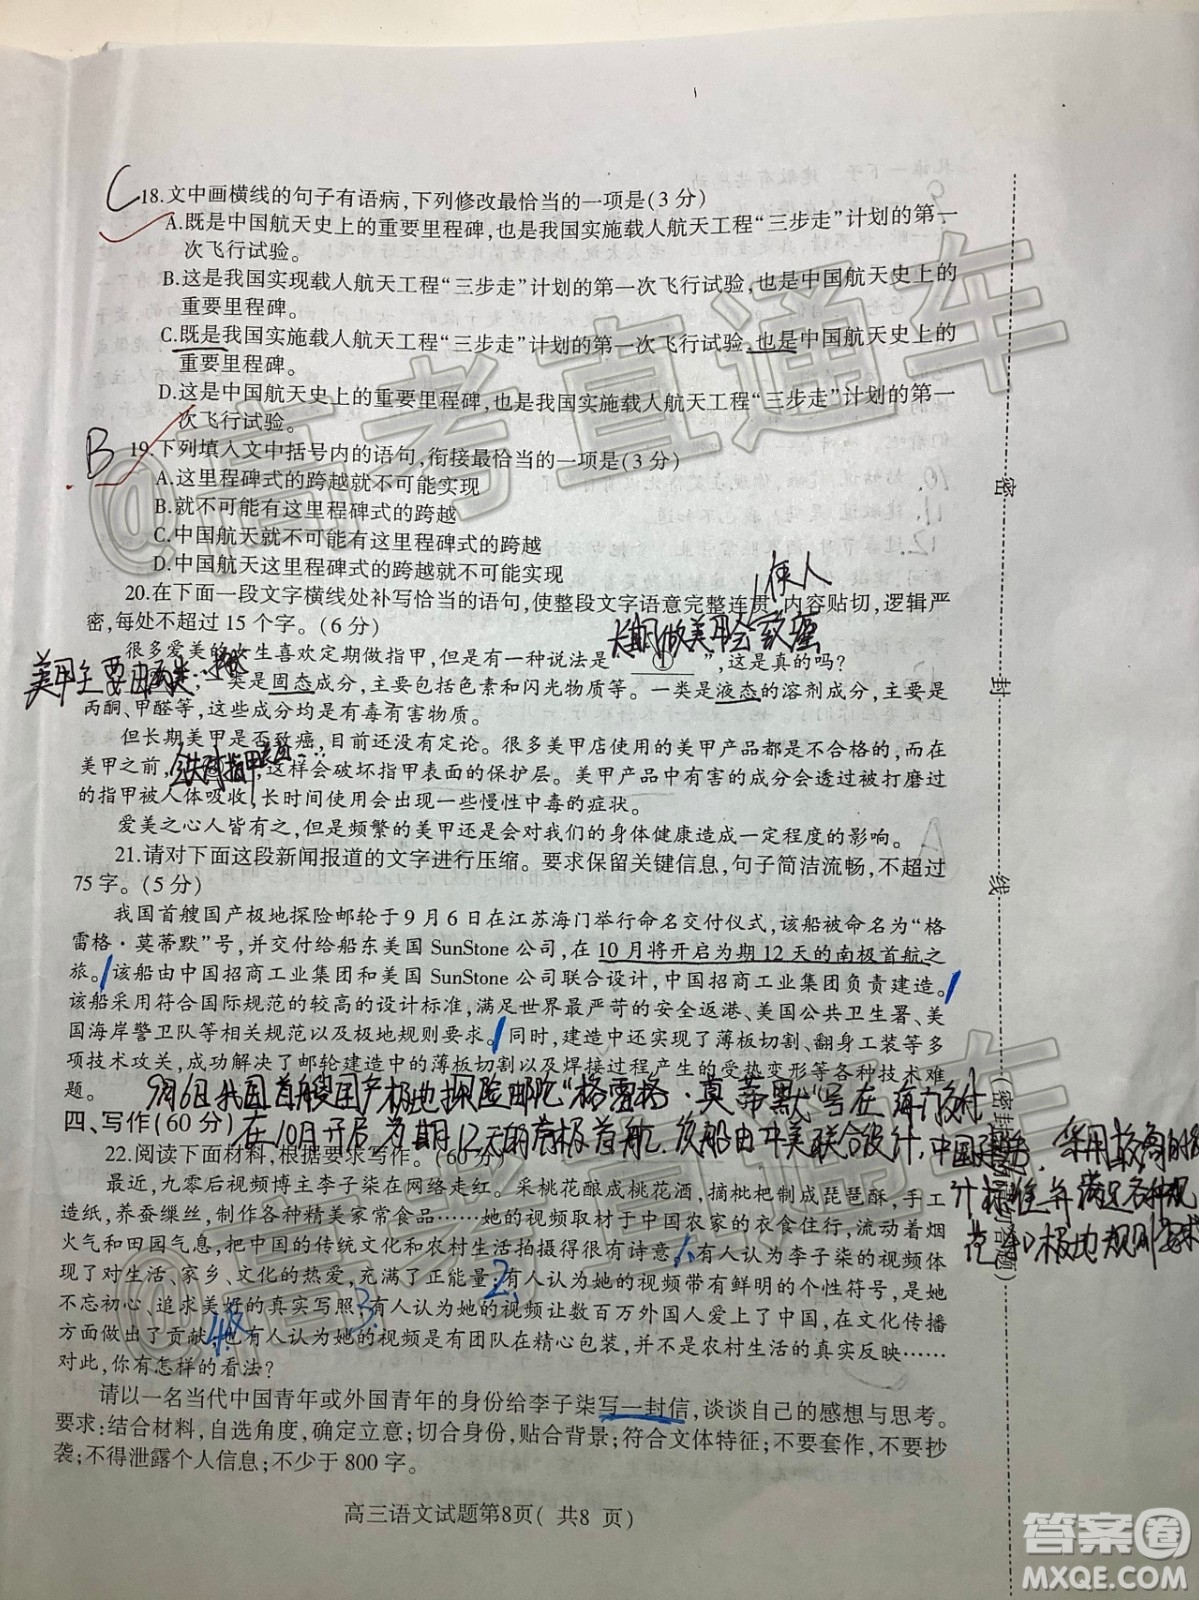 C
18.文中画横线的句子有语病,下列修改最恰当的一项是(3分)
A.既是中国航天史上的重要里程碑,也是我国实施载人航天工程“三步走”计划的第一
次飞行试验。
B.这是我国实现载人航天工程“三步走”计划的第一次飞行试验,也是中国航天史上的
重要里程碑。
C.既是我国实施载人航天工程“三步走”计划的第一次飞行试验,也是中国航天史上的
重要里程碑。
D.这是中国航天史上的重要里程碑,也是我国实施载人航天工程“三步走”计划的第一
次飞行试验。
B
19.下列填入文中括号内的语句,衔接最恰当的一项是(3分)
A.这里程碑式的跨越就不可能实现
B.就不可能有这里程碑式的跨越
C.中国航天就不可能有这里程碑式的跨越
D.中国航天这里程碑式的跨越就不可能实现
使人
20.在下面一段文字横线处补写恰当的语句,使整段文字语意完整连贯,内容贴切,逻辑严
密,每处不超过15个字。(6分)
长期做美甲会致癌
很多爱美的女生喜欢定期做指甲,但是有一种说法是“①”,这是真的吗?
美甲主要由两类
,一类是固态成分,主要包括色素和闪光物质等。一类是液态的溶剂成分,主要是
丙酮、甲醛等,这些成分均是有毒有害物质。
但长期美甲是否致癌,目前还没有定论。很多美甲店使用的美甲产品都是不合格的,而在
美甲之前,会先对指甲表面,这样会破坏指甲表面的保护层。美甲产品中有害的成分会透过被打磨过
的指甲被人体吸收,长时间使用会出现一些慢性中毒的症状。
爱美之心人皆有之,但是频繁的美甲还是会对我们的身体健康造成一定程度的影响。
21.请对下面这段新闻报道的文字进行压缩。要求保留关键信息,句子简洁流畅,不超过
75字。(5分)
我国首艘国产极地探险邮轮于9月6日在江苏海门举行命名交付仪式,该船被命名为“格
雷格·莫蒂默”号,并交付给船东美国SunStone公司,在10月将开启为期12天的南极首航之
旅。该船由中国招商工业集团和美国SunStone公司联合设计,中国招商工业集团负责建造。
该船采用符合国际规范的较高的设计标准,满足世界最严苛的安全返港、美国公共卫生署、美
国海岸警卫队等相关规范以及极地规则要求。同时,建造中还实现了薄板切割、翻身工装等多
项技术攻关,成功解决了邮轮建造中的薄板切割以及焊接过程产生的受热变形等各种技术难
题。
9月6日我国首艘国产极地探险邮轮“格雷格·莫蒂默”号在海门交付
四、写作(60分)
在10月开启为期12天的南极首航,该船由中美联合设计,中国建造,采用较高的设
计标准并满足各种规
范和极地规则要求
22.阅读下面材料,根据要求写作。(60分)
最近,九零后视频博主李子柒在网络走红。采桃花酿成桃花酒,摘枇杷制成琵琶酥,手工
造纸,养蚕缫丝,制作各种精美家常食品……她的视频取材于中国农家的衣食住行,流动着烟
火气和田园气息,把中国的传统文化和农村生活拍摄得很有诗意。有人认为李子柒的视频体
现了对生活、家乡、文化的热爱,充满了正能量;有人认为她的视频带有鲜明的个性符号,是她
不忘初心、追求美好的真实写照;有人认为她的视频让数百万外国人爱上了中国,在文化传播
方面做出了贡献;也有人认为她的视频是有团队在精心包装,并不是农村生活的真实反映……
对此,你有怎样的看法?
请以一名当代中国青年或外国青年的身份给李子柒写一封信,谈谈自己的感想与思考。
要求:结合材料,自选角度,确定立意;切合身份,贴合背景;符合文体特征;不要套作,不要抄
袭;不得泄露个人信息;不少于800字。
高三语文试题第8页( 共8 页)
密
封
线
@高考直通车
@高考直通车
答案圈
MXQE.COM